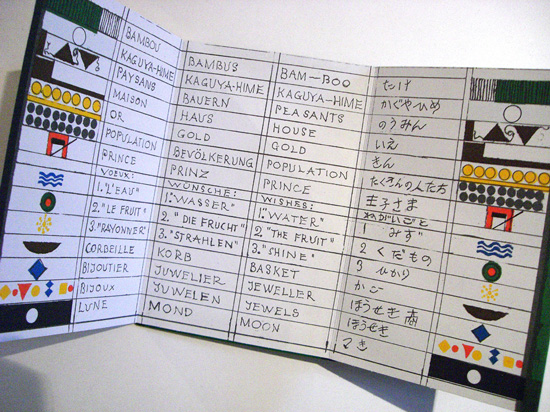 BAMBOU
KAGUYA-HIME
PAYSANS
MAISON
OR
POPULATION
PRINCE
VOEUX:
1. "L'EAU"
2. "LE FRUIT"
3. "RAYONNER"
CORBEILLE
BIJOUTIER
BIJOUX
LUNE
BAMBUS
KAGUYA-HIME
BAUERN
HAUS
GOLD
BEVÖLKERUNG
PRINZ
WÜNSCHE:
1. "WASSER"
2. "DIE FRUCHT"
3. "STRAHLEN"
KORB
JUWELIER
JUWELEN
MOND
BAM-BOO
KAGUYA-HIME
PEASANTS
HOUSE
GOLD
POPULATION
PRINCE
WISHES:
1. "WATER"
2. "THE FRUIT"
3. "SHINE"
BASKET
JEWELLER
JEWELS
MOON
たけ
かぐやひめ
のうみん
いえ
きん
たくさんの人たち
王子さま
ねがいごと
1 みず
2 くだもの
3 ひかり
かご
ほうせき商
ほうせき
つき